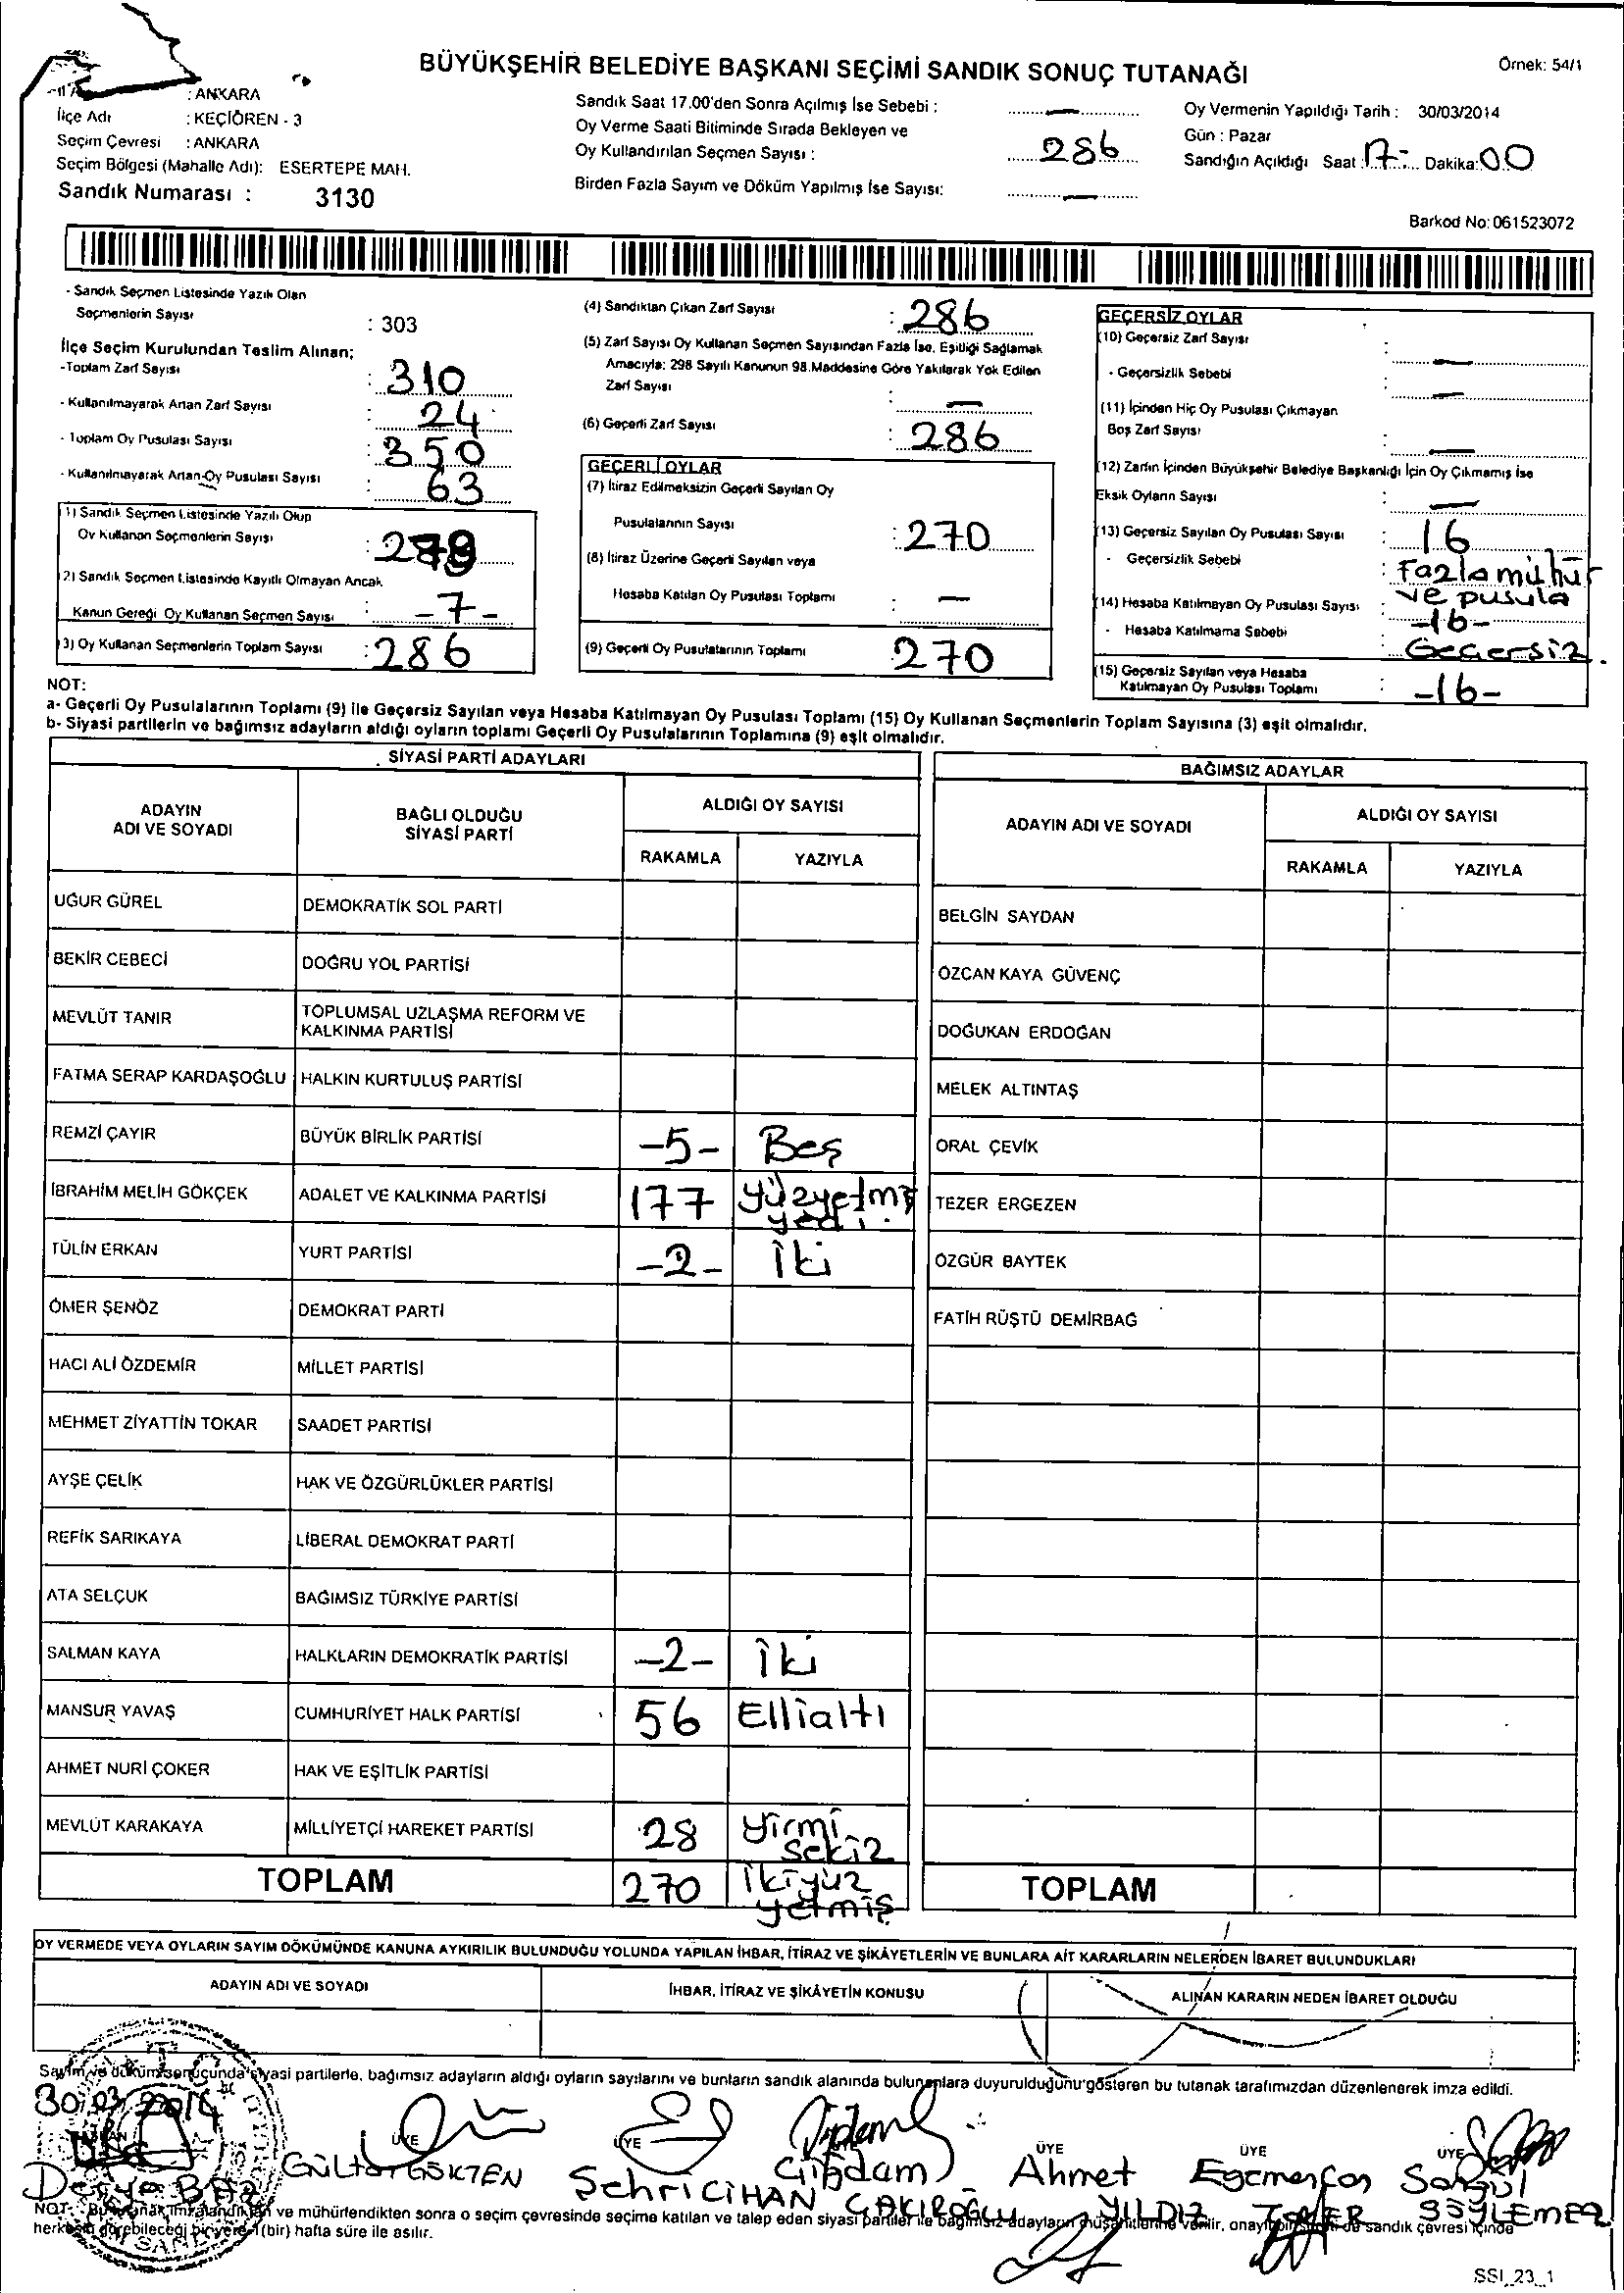 BÜYÜKŞEHİR BELEDİYE BAŞKANI SEÇİMİ SANDIK SONUÇ TUTANAĞI
Örnek: 54/1
: ANKARA
İlçe Adı : KEÇİÖREN - 3
Seçim Çevresi : ANKARA
Seçim Bölgesi (Mahalle Adı): ESERTEPE MAH.
Sandık Numarası : 3130
Sandık Saat 17.00'den Sonra Açılmış İse Sebebi : —
Oy Verme Saati Bitiminde Sırada Bekleyen ve
Oy Kullandırılan Seçmen Sayısı : 286
Birden Fazla Sayım ve Döküm Yapılmış İse Sayısı: —
Oy Vermenin Yapıldığı Tarih : 30/03/2014
Gün : Pazar
Sandığın Açıldığı Saat : 17 Dakika: 00
Barkod No: 061523072
- Sandık Seçmen Listesinde Yazılı Olan
Seçmenlerin Sayısı : 303
İlçe Seçim Kurulundan Teslim Alınan;
-Toplam Zarf Sayısı : 310
- Kullanılmayarak Artan Zarf Sayısı : 24
- Toplam Oy Pusulası Sayısı : 350
- Kullanılmayarak Artan Oy Pusulası Sayısı : 63
(1) Sandık Seçmen Listesinde Yazılı Olup
Oy Kullanan Seçmenlerin Sayısı : 279
(2) Sandık Seçmen Listesinde Kayıtlı Olmayan Ancak
Kanun Gereği Oy Kullanan Seçmen Sayısı : -7-
(3) Oy Kullanan Seçmenlerin Toplam Sayısı : 286
(4) Sandıktan Çıkan Zarf Sayısı : 286
(5) Zarf Sayısı Oy Kullanan Seçmen Sayısından Fazla İse, Eşitliği Sağlamak
Amacıyla; 298 Sayılı Kanunun 98.Maddesine Göre Yakılarak Yok Edilen
Zarf Sayısı : —
(6) Geçerli Zarf Sayısı : 286
GEÇERLİ OYLAR
(7) İtiraz Edilmeksizin Geçerli Sayılan Oy
Pusulalarının Sayısı : 270
(8) İtiraz Üzerine Geçerli Sayılan veya
Hesaba Katılan Oy Pusulası Toplamı : —
(9) Geçerli Oy Pusulalarının Toplamı : 270
GEÇERSİZ OYLAR
(10) Geçersiz Zarf Sayısı : —
- Geçersizlik Sebebi : —
(11) İçinden Hiç Oy Pusulası Çıkmayan
Boş Zarf Sayısı : —
(12) Zarfın İçinden Büyükşehir Belediye Başkanlığı İçin Oy Çıkmamış İse
Eksik Oyların Sayısı : —
(13) Geçersiz Sayılan Oy Pusulası Sayısı : 16
- Geçersizlik Sebebi : Fazla mühür
ve pusula
(14) Hesaba Katılmayan Oy Pusulası Sayısı : -16-
- Hesaba Katılmama Sebebi : Geçersiz.
(15) Geçersiz Sayılan veya Hesaba
Katılmayan Oy Pusulası Toplamı : -16-
NOT:
a- Geçerli Oy Pusulalarının Toplamı (9) ile Geçersiz Sayılan veya Hesaba Katılmayan Oy Pusulası Toplamı (15) Oy Kullanan Seçmenlerin Toplam Sayısına (3) eşit olmalıdır.
b- Siyasi partilerin ve bağımsız adayların aldığı oyların toplamı Geçerli Oy Pusulalarının Toplamına (9) eşit olmalıdır.
SİYASİ PARTİ ADAYLARI
ADAYIN
ADI VE SOYADI
BAĞLI OLDUĞU
SİYASİ PARTİ
ALDIĞI OY SAYISI
RAKAMLA YAZIYLA
UĞUR GÜREL DEMOKRATİK SOL PARTİ
BEKİR CEBECİ DOĞRU YOL PARTİSİ
MEVLÜT TANIR TOPLUMSAL UZLAŞMA REFORM VE
KALKINMA PARTİSİ
FATMA SERAP KARDAŞOĞLU HALKIN KURTULUŞ PARTİSİ
REMZİ ÇAYIR BÜYÜK BİRLİK PARTİSİ -5- Beş
İBRAHİM MELİH GÖKÇEK ADALET VE KALKINMA PARTİSİ 177 Yüzyetmiş
yedi.
TÜLİN ERKAN YURT PARTİSİ -2- İki
ÖMER ŞENÖZ DEMOKRAT PARTİ
HACI ALİ ÖZDEMİR MİLLET PARTİSİ
MEHMET ZİYATTİN TOKAR SAADET PARTİSİ
AYŞE ÇELİK HAK VE ÖZGÜRLÜKLER PARTİSİ
REFİK SARIKAYA LİBERAL DEMOKRAT PARTİ
ATA SELÇUK BAĞIMSIZ TÜRKİYE PARTİSİ
SALMAN KAYA HALKLARIN DEMOKRATİK PARTİSİ -2- İki
MANSUR YAVAŞ CUMHURİYET HALK PARTİSİ 56 Ellialtı
AHMET NURİ ÇOKER HAK VE EŞİTLİK PARTİSİ
MEVLÜT KARAKAYA MİLLİYETÇİ HAREKET PARTİSİ 28 Yirmi
sekiz
TOPLAM 270 İkiyüz
yetmiş
BAĞIMSIZ ADAYLAR
ADAYIN ADI VE SOYADI
ALDIĞI OY SAYISI
RAKAMLA YAZIYLA
BELGİN SAYDAN
ÖZCAN KAYA GÜVENÇ
DOĞUKAN ERDOĞAN
MELEK ALTINTAŞ
ORAL ÇEVİK
TEZER ERGEZEN
ÖZGÜR BAYTEK
FATİH RÜŞTÜ DEMİRBAĞ
TOPLAM
OY VERMEDE VEYA OYLARIN SAYIM DÖKÜMÜNDE KANUNA AYKIRILIK BULUNDUĞU YOLUNDA YAPILAN İHBAR, İTİRAZ VE ŞİKÂYETLERİN VE BUNLARA AİT KARARLARIN NELERDEN İBARET BULUNDUKLARI
ADAYIN ADI VE SOYADI İHBAR, İTİRAZ VE ŞİKÂYETİN KONUSU ALINAN KARARIN NEDEN İBARET OLDUĞU
Sayım ve döküm sonucunda siyasi partilerle, bağımsız adayların aldığı oyların sayılarını ve bunların sandık alanında bulunanlara duyurulduğunu gösteren bu tutanak tarafımızdan düzenlenerek imza edildi.
30.03.2014
BAŞKAN ÜYE ÜYE ÜYE ÜYE ÜYE
Derya Gültar GÖKTEN Şehri CİHAN Çiğdem ÇAKIROĞLU Ahmet YILDIZ Egemenfos TANER Songül SÖYLEMEZ
NOT: Bu tutanak, imzalandıktan ve mühürlendikten sonra o seçim çevresinde seçime katılan ve talep eden siyasi partiler ile bağımsız adayların müşahitlerine verilir, onaylı bir sureti de sandık çevresi içinde
herkesin görebileceği bir yere 1 (bir) hafta süre ile asılır.
SSI_23_1